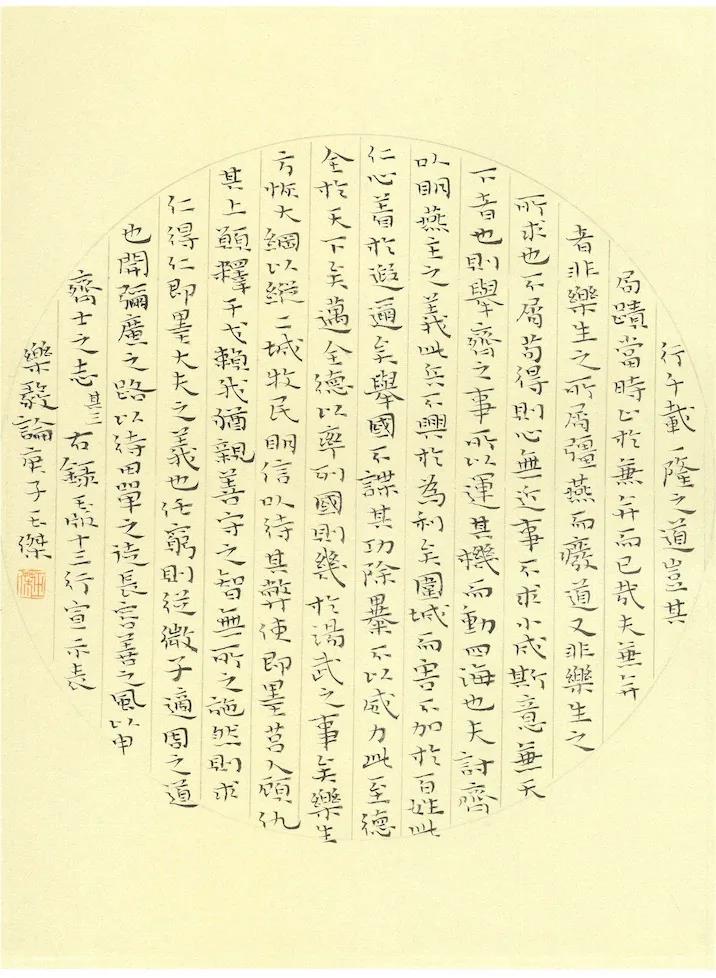 行千載一隆之道豈其
局蹟當時止於兼并而已哉夫兼并
者非樂生之所屑彊燕而廢道又非樂生之
所求也不屑苟得則心無近事不求小成斯意兼天
下者也則舉齊之事所以運其機而動四海也夫討齊
以明燕主之義此兵不興於為利矣圍城而害不加於百姓此
仁心著於遐邇矣舉國不謀其功除暴不以威力此至德
全於天下矣邁全德以率列國則幾於湯武之事矣樂生
方恢大綱以縱二城牧民明信以待其弊使即墨莒人顧仇
其上願釋干戈賴我猶親善守之智無所之施然則求
仁得仁即墨大夫之義也任窮則從微子適周之道
也開彌廣之路以待田單之徒長容善之風以申
齊士之志 其三 右錄玉版十三行宣示表
樂毅論庚子王傑